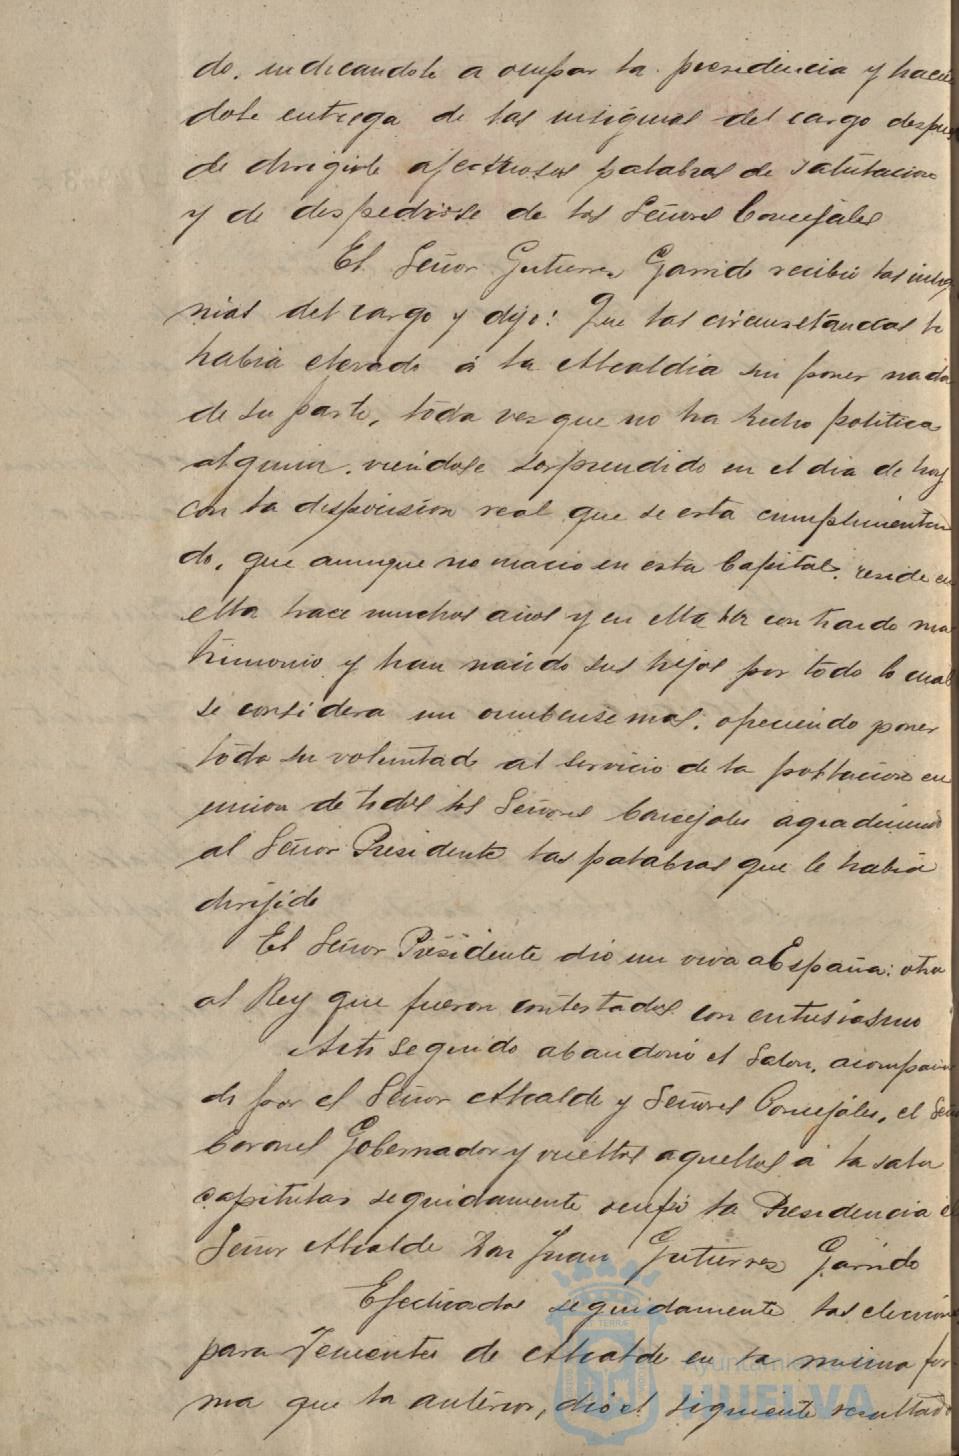 do, indicandole a ocupar la presidencia y hacien
dole entrega de las insignias del cargo despues
de dirigirle afectuosas palabras de salutacion
y de despedirse de los Señores Concejales
El Señor Gutierrez Garrido recibió las insig
nias del cargo y dijo: Que las circunstancias le
habia elevado á la Alcaldia sin poner nada
de su parte, toda vez que no ha hecho politica
alguna, viendose sorprendido en el dia de hoy
con la disposicion real que se esta cumplimentan
do, que aunque no nacio en esta Capital, reside en
ella hace muchos años y en ella ha contraido ma
trimonio y han nacido sus hijos por todo lo cual
se considera un onubense mas, ofreciendo poner
toda su voluntad al servicio de la poblacion en
union de todos los Señores Concejales agradeciendo
al Señor Presidente las palabras que le habia
dirijido
El Señor Presidente dió un viva a España: otro
al Rey que fueron contestados con entusiasmo
Acto seguido abandonó el Salon, acompaña
do por el Señor Alcalde y Señores Concejales, el Señor
Coronel Gobernador y vueltos aquellos á la sala
capitular seguidamente ocupó la Presidencia el
Señor Alcalde Don Juan Gutierrez Garrido
Efectuadas seguidamente las elecciones
para Tenientes de Alcalde en la misma for
ma que la anterior, dió el siguiente resultado
Ayuntamiento
HUELVA